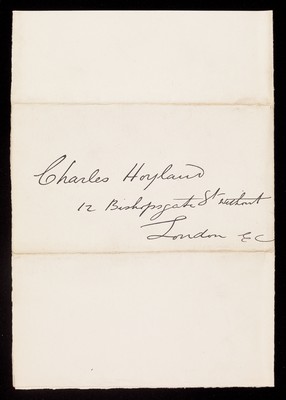 Charles Hoyland
12 Bishopsgate St Without
London E C